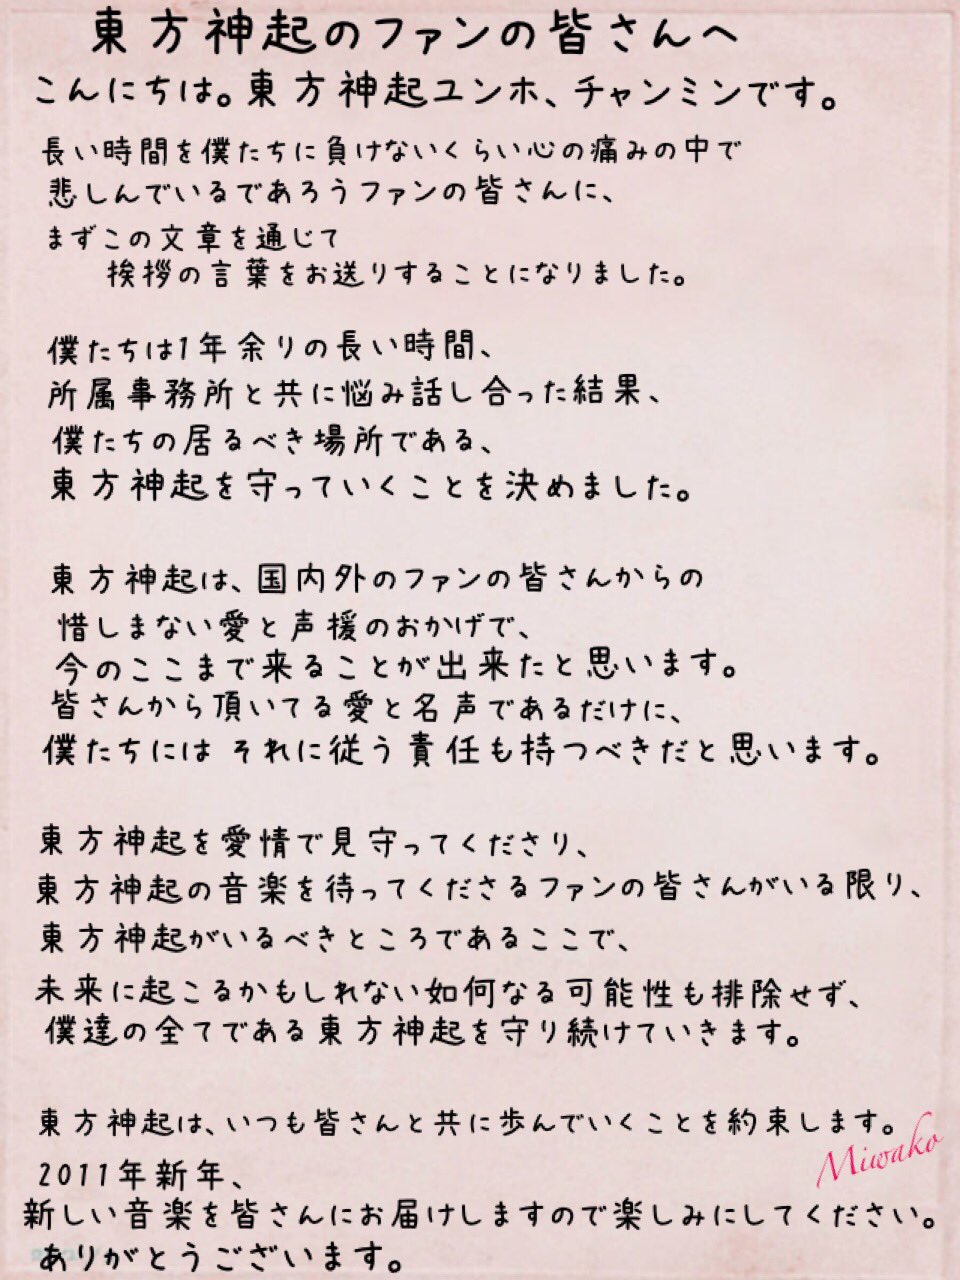 東方神起のファンの皆さんへ
こんにちは。東方神起ユンホ、チャンミンです。
長い時間を僕たちに負けないくらい心の痛みの中で
悲しんでいるであろうファンの皆さんに、
まずこの文章を通じて
挨拶の言葉をお送りすることになりました。
僕たちは1年余りの長い時間、
所属事務所と共に悩み話し合った結果、
僕たちの居るべき場所である、
東方神起を守っていくことを決めました。
東方神起は、国内外のファンの皆さんからの
惜しまない愛と声援のおかげで、
今のここまで来ることが出来たと思います。
皆さんから頂いてる愛と名声であるだけに、
僕たちには それに従う責任も持つべきだと思います。
東方神起を愛情で見守ってくださり、
東方神起の音楽を待ってくださるファンの皆さんがいる限り、
東方神起がいるべきところであるここで、
未来に起こるかもしれない如何なる可能性も排除せず、
僕達の全てである東方神起を守り続けていきます。
東方神起は、いつも皆さんと共に歩んでいくことを約束します。
Miwako
2011年新年、
新しい音楽を皆さんにお届けしますので楽しみにしてください。
ありがとうございます。